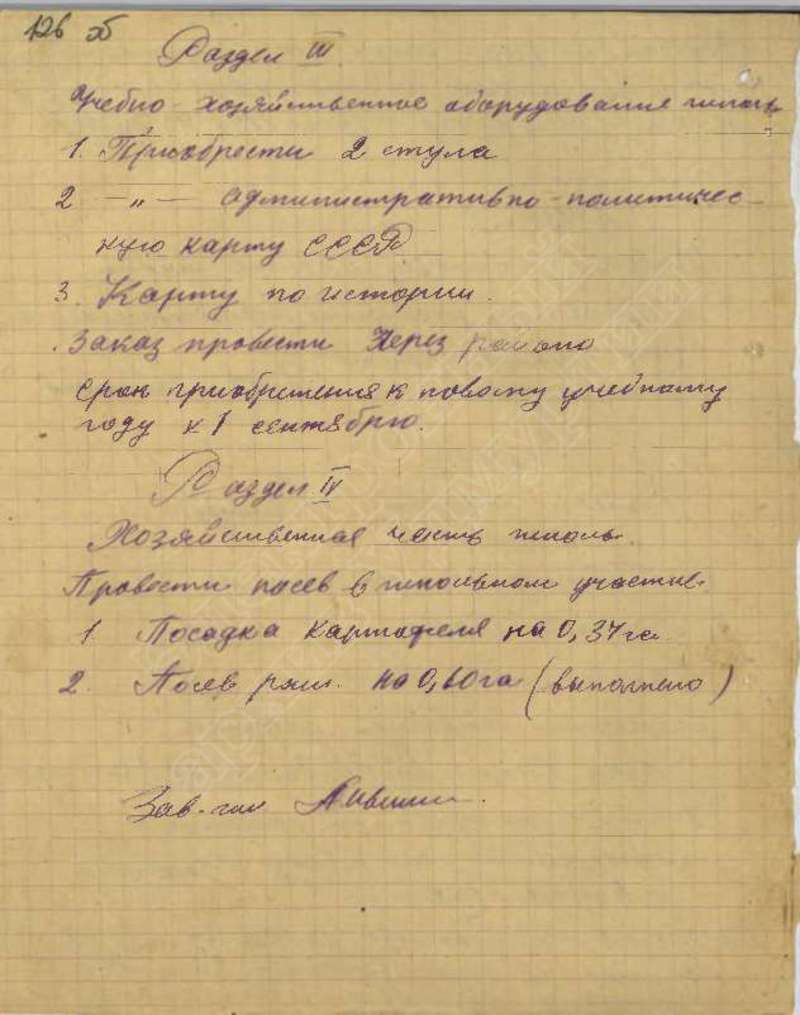 126 об
Раздел III
Учебно-хозяйственное оборудование школы
1. Приобрести 2 стула
2 —„— административно-политичес-
кую карту СССР
3. Карту по истории.
Заказ провести через районо
срок приобретения к новому учебному
году к 1 сентябрю.
Раздел IV
Хозяйственная часть школы.
Провести посев в школьном участке.
1 Посадка картофеля на 0,34 га
2. Посев ржи. на 0,60 га (выполнено)
Зав.